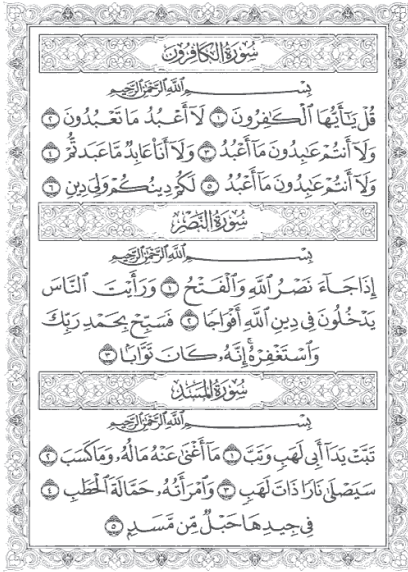 سُورَةُ الكَافِرُونَ
بِسْمِ اللَّهِ الرَّحْمَٰنِ الرَّحِيمِ
قُلْ يَٰٓأَيُّهَا الْكَٰفِرُونَ ١ لَآ أَعْبُدُ مَا تَعْبُدُونَ ٢
وَلَآ أَنتُمْ عَٰبِدُونَ مَآ أَعْبُدُ ٣ وَلَآ أَنَا۠ عَابِدٌ مَّا عَبَدتُّمْ ٤
وَلَآ أَنتُمْ عَٰبِدُونَ مَآ أَعْبُدُ ٥ لَكُمْ دِينُكُمْ وَلِيَ دِينِ ٦
سُورَةُ النَّصْرِ
بِسْمِ اللَّهِ الرَّحْمَٰنِ الرَّحِيمِ
إِذَا جَآءَ نَصْرُ اللَّهِ وَالْفَتْحُ ١ وَرَأَيْتَ النَّاسَ
يَدْخُلُونَ فِي دِينِ اللَّهِ أَفْوَاجًا ٢ فَسَبِّحْ بِحَمْدِ رَبِّكَ
وَاسْتَغْفِرْهُ ۚ إِنَّهُۥ كَانَ تَوَّابًا ٣
سُورَةُ المَسَدِ
بِسْمِ اللَّهِ الرَّحْمَٰنِ الرَّحِيمِ
تَبَّتْ يَدَآ أَبِي لَهَبٍ وَتَبَّ ١ مَآ أَغْنَىٰ عَنْهُ مَالُهُۥ وَمَا كَسَبَ ٢
سَيَصْلَىٰ نَارًا ذَاتَ لَهَبٍ ٣ وَامْرَأَتُهُۥ حَمَّالَةَ الْحَطَبِ ٤
فِي جِيدِهَا حَبْلٌ مِّن مَّسَدٍۭ ٥